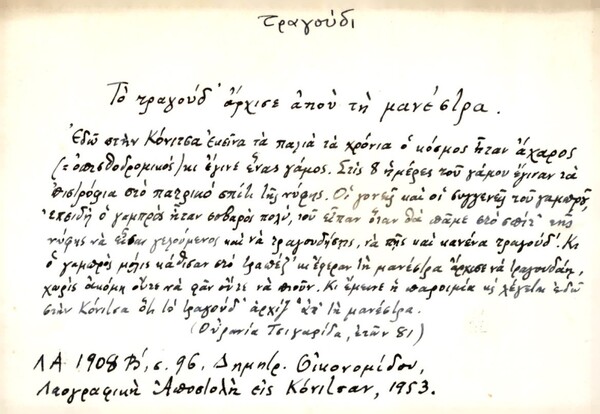 τραγούδι
Τὸ τραγούδ' ἄρχισε ἀποὺ τὴ μανέστρα.
Ἐδῶ στὴν Κόνιτσα ἐκεῖνα τὰ παλιὰ τὰ χρόνια ὁ κόσμος ἦταν ἄχαρος
(=ὀπισθοδρομικὸς) κι ἔγινε ἕνας γάμος. Στὶς 8 ἡμέρες τοῦ γάμου ἔγιναν τὰ
πιστρόφια στὸ πατρικὸ σπίτι τῆς νύφης. Οἱ γονεῖς καὶ οἱ συγγενεῖς τοῦ γαμπροῦ,
ἐπειδὴ ὁ γαμπρὸς ἦταν σοβαρὸς πολύ, τοῦ εἶπαν ὅταν θὰ πᾶμε στὸ σπίτ' τῆς
νύφης νὰ εἶσαι γελούμενος καὶ νὰ τραγουδήσης, νὰ πῆς καὶ κανένα τραγούδ'. Κι
ὁ γαμπρὸς μόλις κάθισαν στὸ τραπέζ' κι ἔφεραν τὴ μανέστρα ἄρχισε νὰ τραγουδάη,
χωρὶς ἀκόμη οὔτε νὰ φᾶν οὔτε νὰ πιοῦν. Κι ἔμεινε ἡ παροιμία κι λέγεται ἐδῶ
στὴν Κόνιτσα ὅτι τὸ τραγούδ' ἀρχίζ' ἀπ' τὴ μανέστρα.
(Οὐρανία Τσιγαρίδα, ἐτῶν 81)
ΛΑ 1908 Β', σ. 96, Δημητρ. Οἰκονομίδου,
Λαογραφικὴ Ἀποστολὴ εἰς Κόνιτσαν, 1953.